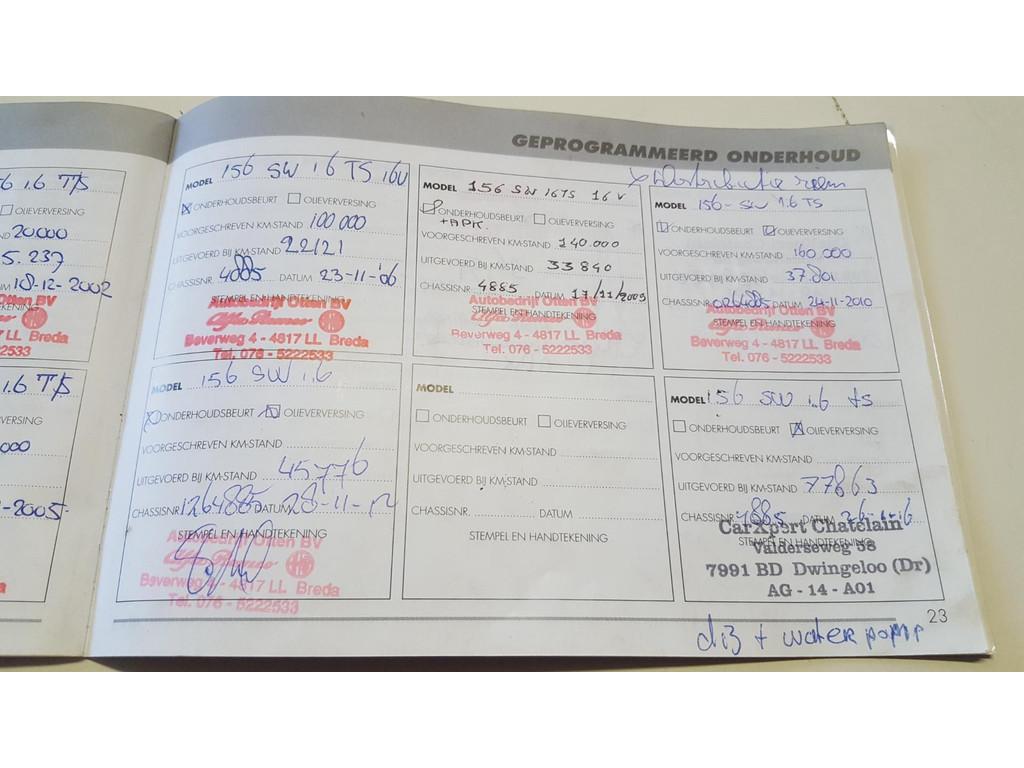 GEPROGRAMMEERD ONDERHOUD
6 1.6 T/S
OLIEVERVERSING
20000
5.237
18-12-2002
Otten BV
LL Breda
22533
1.6 T/S
VERVERSING
000
-2005-
MODEL 156 SW 1.6 TS 16V
ONDERHOUDSBEURT OLIEVERVERSING
VOORGESCHREVEN KM-STAND 100 000
UITGEVOERD BIJ KM-STAND 22121
CHASSISNR. 4885 DATUM 23-11-'06
STEMPEL EN HANDTEKENING
Autobedrijf Otten BV
Alfa Romeo
Beverweg 4 - 4817 LL Breda
Tel. 076 - 5222533
MODEL 156 SW 16TS 16 V
ONDERHOUDSBEURT OLIEVERVERSING
+APK.
VOORGESCHREVEN KM-STAND 140.000
UITGEVOERD BIJ KM-STAND 33840
CHASSISNR. 4885 DATUM 17/11/2009
Autobedrijf Otten BV
STEMPEL EN HANDTEKENING
Alfa Romeo
Beverweg 4 - 4817 LL Breda
Tel. 076 - 5222533
x Distributie riem
MODEL 156-SW 1.6 TS
ONDERHOUDSBEURT OLIEVERVERSING
VOORGESCHREVEN KM-STAND 160.000
UITGEVOERD BIJ KM-STAND 37.801
CHASSISNR. DATUM 24-11-2010
Autobedrijf Otten BV
STEMPEL EN HANDTEKENING
Alfa Romeo
Beverweg 4 - 4817 LL Breda
Tel. 076 - 5222533
MODEL 156 SW 1.6
ONDERHOUDSBEURT OLIEVERVERSING
VOORGESCHREVEN KM-STAND
UITGEVOERD BIJ KM-STAND 45776
CHASSISNR. 1264885 DATUM 28-11-12
STEMPEL EN HANDTEKENING
Autobedrijf Otten BV
Alfa Romeo
Beverweg 4 - 4817 LL Breda
Tel. 076 - 5222533
MODEL
ONDERHOUDSBEURT OLIEVERVERSING
VOORGESCHREVEN KM-STAND
UITGEVOERD BIJ KM-STAND
CHASSISNR. DATUM
STEMPEL EN HANDTEKENING
MODEL 156 SW 1.6 ts
ONDERHOUDSBEURT OLIEVERVERSING
VOORGESCHREVEN KM-STAND
UITGEVOERD BIJ KM-STAND 77863
CHASSISNR. 4885 DATUM
CarXpert Chatelain
STEMPEL EN HANDTEKENING
Valderseweg 58
7991 BD Dwingeloo (Dr)
AG - 14 - A01
23
dis + waterpomp